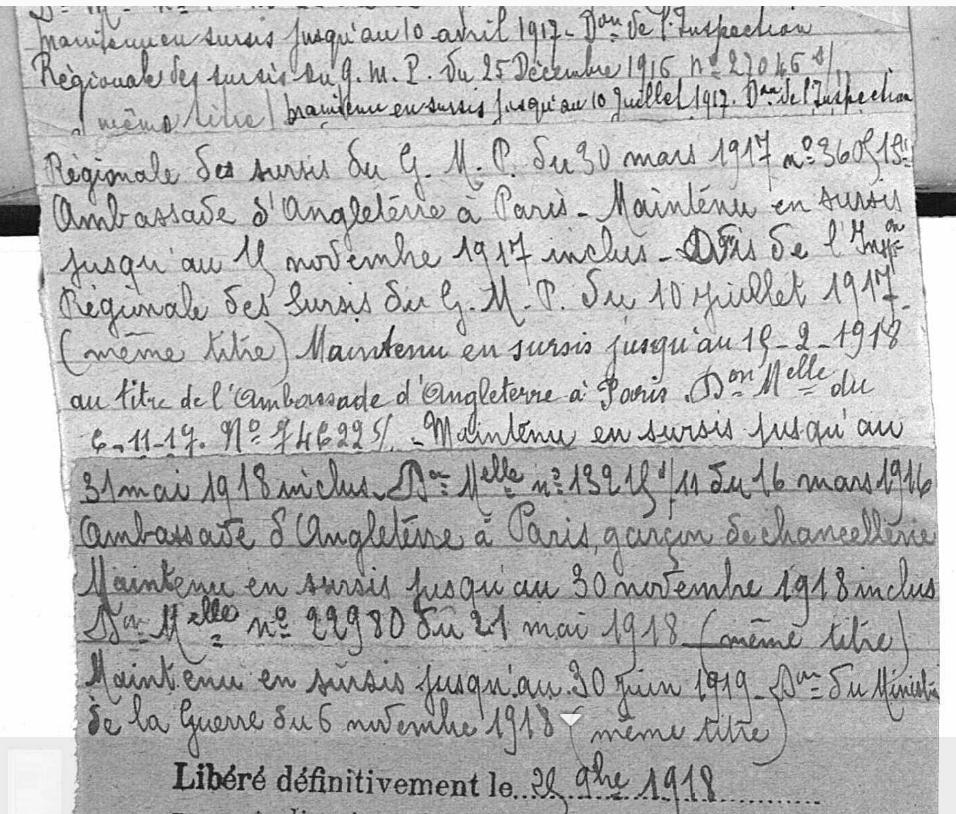 maintenu en sursis jusqu'au 10 avril 1917 - Don de l'Inspection
Régionale des sursis du G. M. P. du 25 Décembre 1916 nº 27045 s/
(même titre) maintenu en sursis jusqu'au 10 Juillet 1917. Don de l'Inspection
Régionale des sursis du G. M. P. du 30 mars 1917 nº
Ambassade d'Angleterre à Paris - Maintenu en sursis
jusqu'au novembre 1917 inclus - de l'Inspon
Régionale des Sursis du G. M. P. du 10 juillet 1917.
(même titre) Maintenu en sursis jusqu'au -2-1918
au titre de l'Ambassade d'Angleterre à Paris. Don Melle du
6-11-17. Nº - Maintenu en sursis jusqu'au
31 mai 1918 inclus. Don Melle nº du 16 mars 1916
Ambassade d'Angleterre à Paris, garçon de chancellerie
Maintenu en sursis jusqu'au 30 novembre 1918 inclus
Don Melle nº 22980 du 21 mai 1918 (même titre)
Maintenu en sursis jusqu'au 30 juin 1919 - Don du Ministre
de la Guerre du 6 novembre 1918 (même titre)
Libéré définitivement le 25 9bre 1918